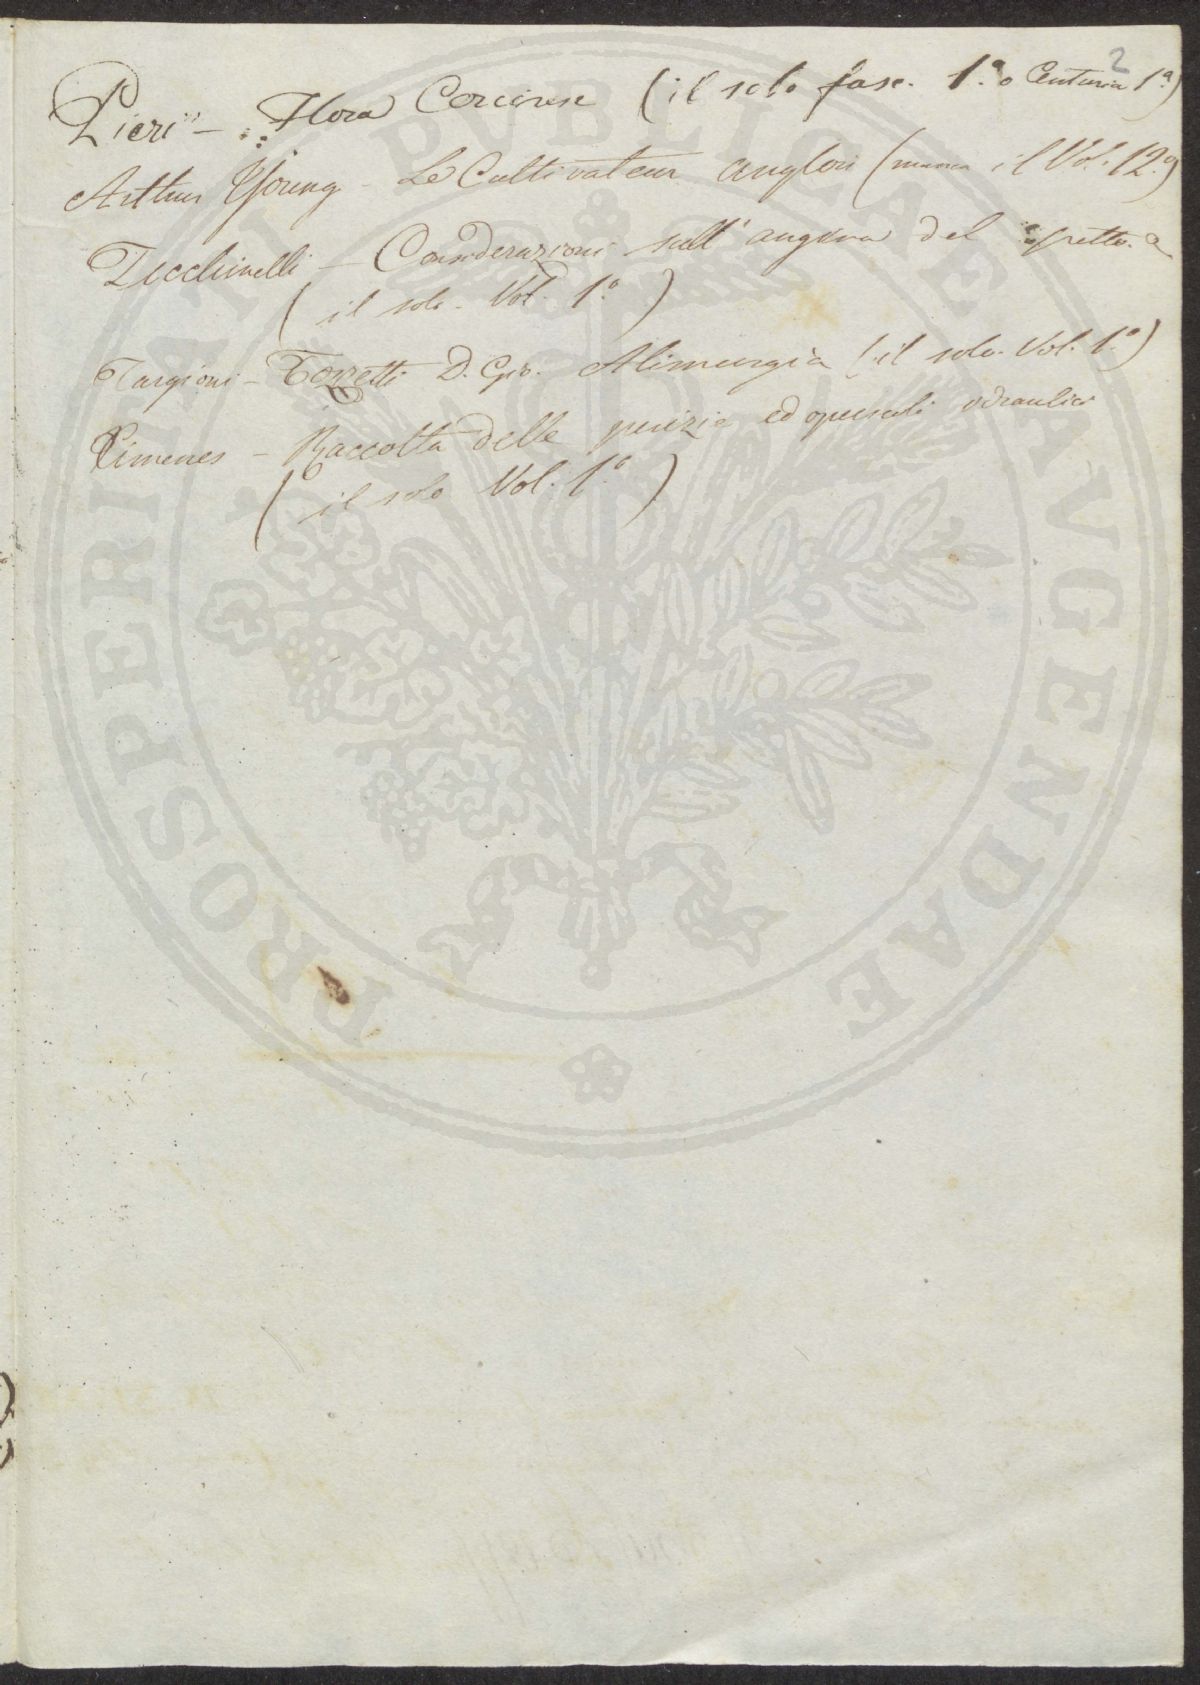 2
Pieri - Flora Corcirese (il solo fasc. 1.º o Centuria 1ª)
Arthur Young - Le Cultivateur anglois (manca il Vol. 12º)
Zecchinelli - Considerazioni sull' angina del petto.
( il solo Vol. 1.º )
Targioni - Tozzetti D. Gio. Alimurgia (il solo Vol. 1.º)
Ximenes - Raccolta delle perizie ed opuscoli idraulici
( il solo Vol. 1.º )
PROSPERITATI PVBLICAE AVGENDAE